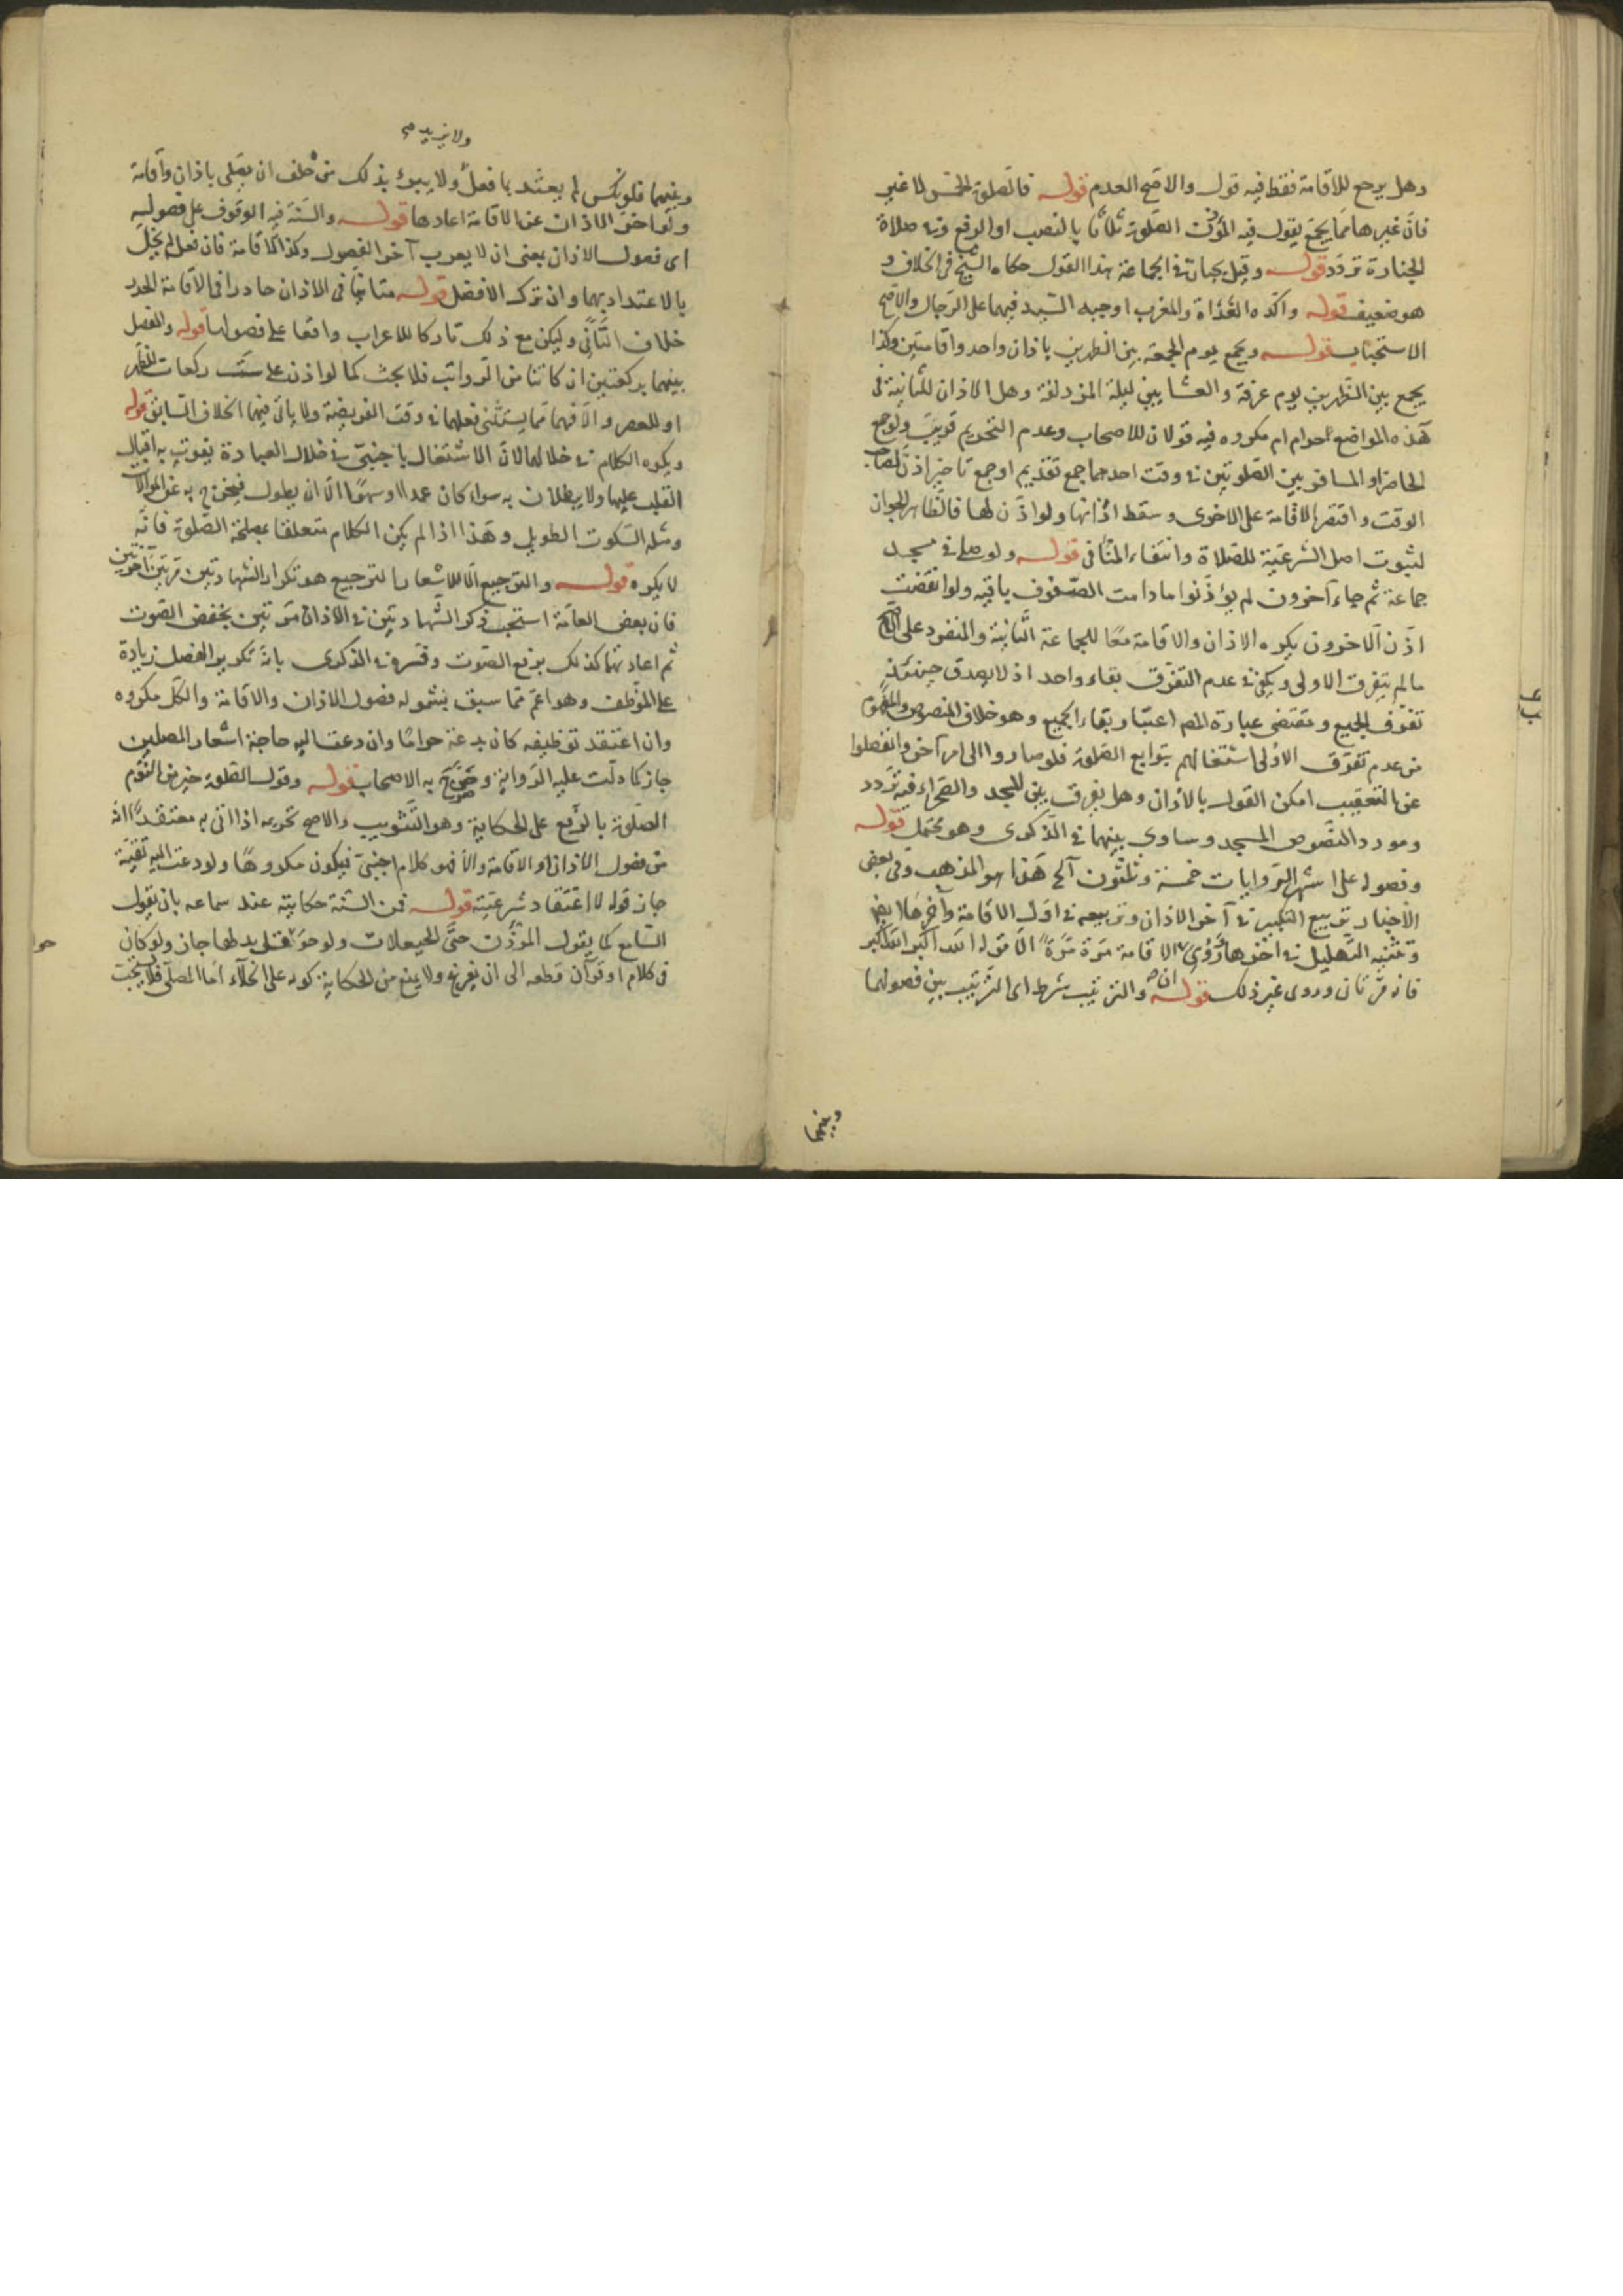 وهل يرجع للاقامة فقط فيه قول والاصح العدم قوله فالصلوة الخمس لا غير
فانّ غيرها مما يجمع يقول فيه المؤذن الصّلوة ثلاثا بالنصب او الرفع وفى صلاة
الجنازة تردد قوله وقيل يجبان فى الجماعة هذا القول حكاه الشيخ فى الخلاف و
هو ضعيف قوله واكده الغداة والمغرب اوجبه السّيد فيهما على الرجال والاصح
الاستحباب قوله ويجمع يوم الجمعة بين الظهرين باذان واحد واقامتين وكذا
يجمع بين الظهرين يوم عرفة والعشايين ليلة المزدلفة وهل الاذان للثانية فى
هذه المواضع حرام ام مكروه فيه قولان للاصحاب وعدم التحريم قريب ولو جمع
الحاضر او المسافر بين الصلوتين فى وقت احدهما جمع تقديم او جمع تاخير اذن لصاحب
الوقت واقتصر الاقامة على الاخرى وسقط اذانها ولو اذّن لها فالظاهر الجواز
لثبوت اصل الشرعيّة للصّلاة وانتفاء المنافى قوله ولو صلى فى مسجد
جماعة ثم جاء آخرون لم يؤذّنوا ما دامت الصّفوف باقيه ولو انفضت
اذّن الاخرون يكره الاذان والاقامة معًا للجماعة الثّانية والمنفرد على الاصح
ما لم يتفرق الاولى ويكفى فى عدم التفرّق بقاء واحد اذ لا يصدق حينئذ
تفرّق الجميع ومقتضى عبارة المصـ اعتبار بقاء الجميع وهو خلاف المنصوص والمفهوم
من عدم تفرّق الاولى اشتغالهم بتوابع الصّلوة فلو صاروا الى امر آخر وانفصلوا
عن التعقيب امكن القول بالاذان وهل يفرق بين المسجد والصّحراء فيه تردد
ومورد النصوص المسجد وساوى بينهما فى الذّكرى وهو محتمل قوله
وفصوله على اشهر الرّوايات خمسة وثلثون آلخ هذا هو المذهب وفى بعض
الاخبار تربيع التكبير فى آخر الاذان وتربيعه فى اول الاقامة
وتثنيه التّهليل فى اخرها وروى ان الاقامة مرّة مرّة الّا قوله الله اكبر الله اكبر
فانه مرّتان وروى غير ذلك قوله والترتيب شرط اى الترتيب بين فصولهما
وبينهما
ولا يزيد صح
وبينهما فلو نكس لم يعتد بما فعل ولا يبرء بذلك من حلف ان يصلى باذان واقامة
ولو اخر الاذان عن الاقامة اعادها قوله والسّنة فيه الوقوف على فصوله
اى فصول الاذان بمعنى ان لا يعرب آخر الفصول وكذا الاقامة فان فعل لم يخل
بالاعتداد بهما وان ترك الافضل قوله متانيا فى الاذان حادرا فى الاقامة الحدر
خلاف التّأنّى وليكن مع ذلك تاركا للاعراب واقفا على فصولها قوله والفصل
بينهما بركعتين ان كانتا من الرّواتب فلا بحث كما لو اذن على ست ركعات للظهر
او للعصر والّا فهما ممّا يستثنى فعلهما فى وقت الفريضة ولا ياتى فيهما الخلاف السّابق قوله
ويكره الكلام فى خلالهما لانّ الاشتغال باجنبىّ فى خلال العبادة يفوت به اقبال
القلب عليها ولا يبطلان به سواء كان عمدا او سهوًا الّا ان يطول فيخرج به عن الموالاة
ومثله السّكوت الطويل وهذا اذا لم يكن الكلام متعلقا بمصلحة الصّلوة فانّه
لا يكره قوله والترجيع الّا للاشعار الترجيع هو تكرار الشهادتين مرّتين آخرتين
فان بعض العامّة استحب ذكر الشهادتين فى الاذان مرّتين بخفض الصّوت
ثم اعادتهما كذلك برفع الصّوت وفسره فى الذكرى بانّه تكرير الفصل زيادة
على الموظف وهو اعمّ ممّا سبق بشموله فصول الاذان والاقامة والكل مكروه
وان اعتقد توظيفه كان بدعة حرامًا وان دعت اليه حاجة اشعار المصلين
جاز كما دلّت عليه الرّواية وصرّح به الاصحاب قوله وقول الصّلوة خير من النّوم
الصّلوة بالرفع على الحكاية وهو التّثويب والاصح تحريمه اذا اتى به معتقدًا انّه
من فصول الاذان او الاقامة والّا فهو كلام اجنبىّ فيكون مكروهًا ولو دعت اليه تقيّة
جاز قوله لا اعتقاد شرعيّته قوله فمن السّنة حكايته عند سماعه بان يقول
السّامع كما يقول المؤذّن حتّى الحيعلات ولو حوقل بدلها جاز ولو كان
فى كلام او قرآن قطعه الى ان يفرغ ولا يمنع من الحكاية كونه على الخلآء امّا المصلّى فلا يستحب